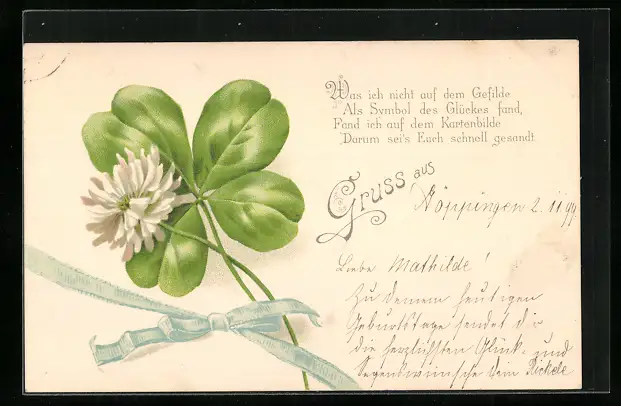 Was ich nicht auf dem Gefilde
Als Symbol des Glückes fand,
Fand ich auf dem Kartenbilde
Darum sei's Euch schnell gesandt
Gruss aus
Göppingen 2. 11 99
Liebe Mathilde!
Zu deinem heutigen
Geburtstage sendet dir
die herzlichsten Glück- und
Segenswünsche dein Rickele